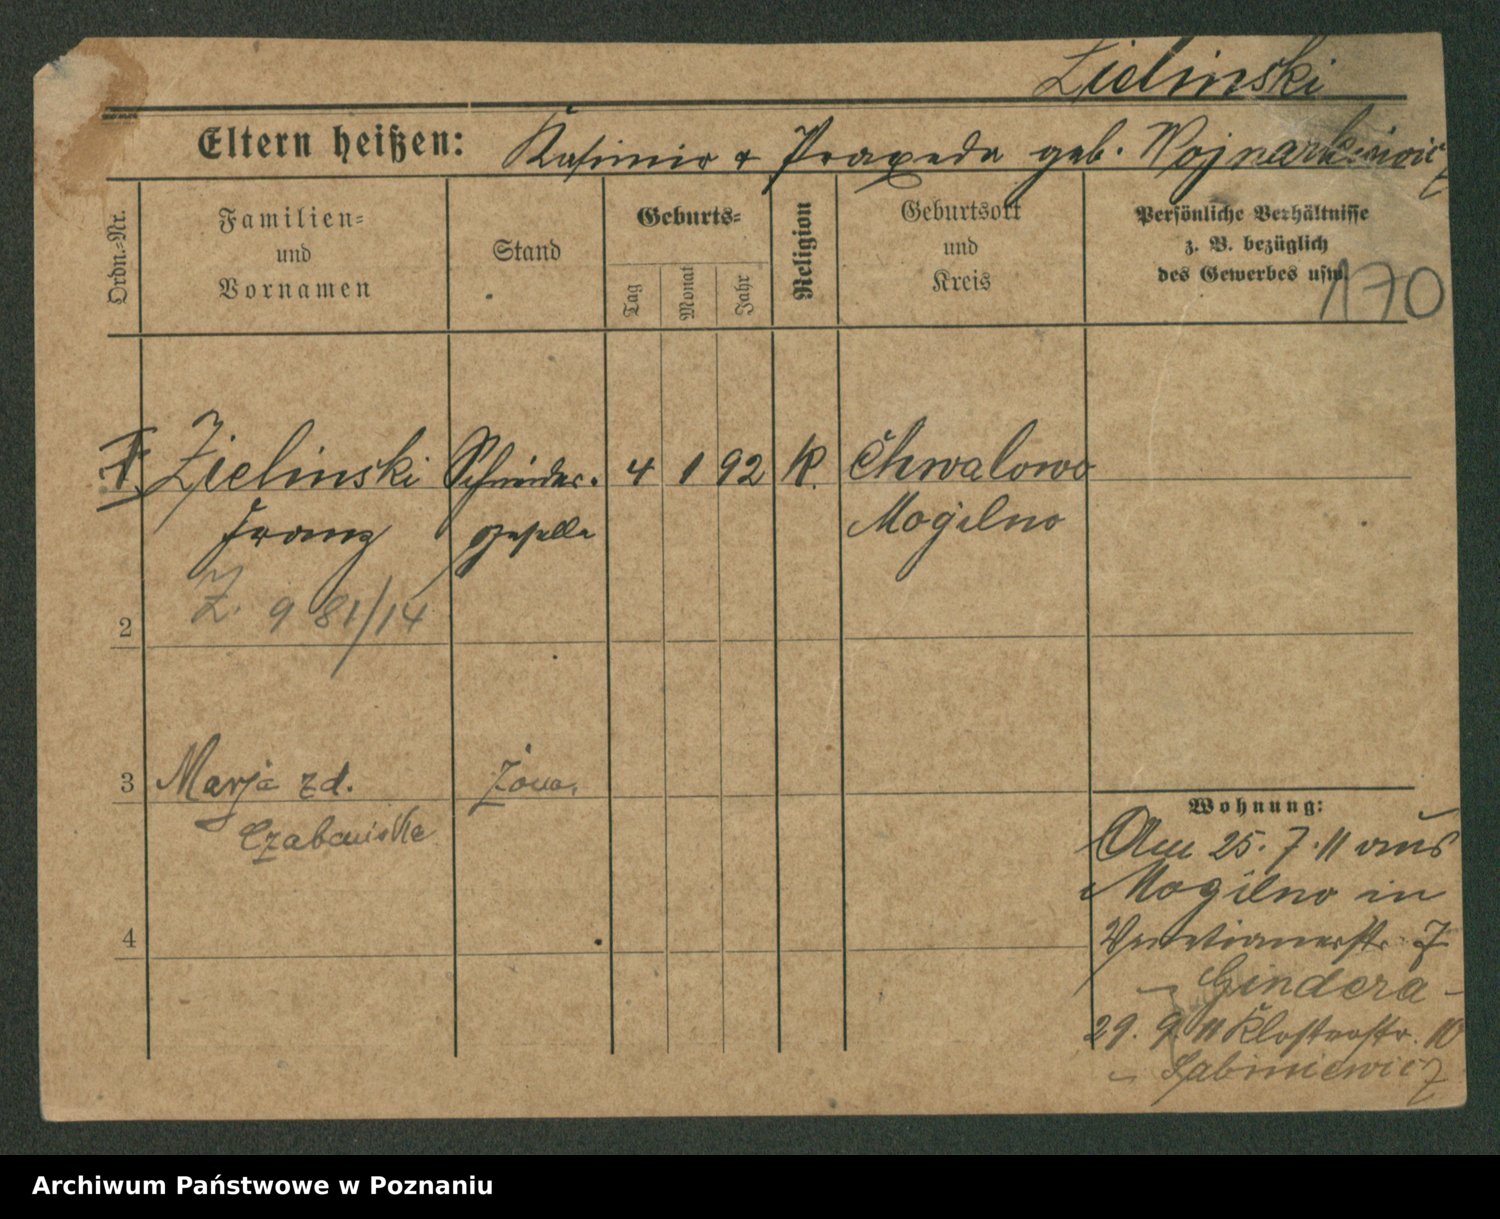 Zielinski
Eltern heißen: Kasimir & Praxeda geb. Wojnarkiewicz
Ordn.=Nr.
Familien=
und
Vornamen
Stand
Geburts=
Tag
Monat
Jahr
Religion
Geburtsort
und
Kreis
Persönliche Verhältnisse
z. B. bezüglich
des Gewerbes usw.
170
1. Zielinski Schneider- 4 1 92 K. Chwalowo
Franz geselle Mogilno
Z. 981/14
2
3 Marja zd. żona
4
Wohnung:
Am 25. 7. 11 aus
Mogilno in
Venetianerstr. 7
- Gindera -
29. 9. 11 Klosterstr. 10
- Sabiniewicz
Archiwum Państwowe w Poznaniu